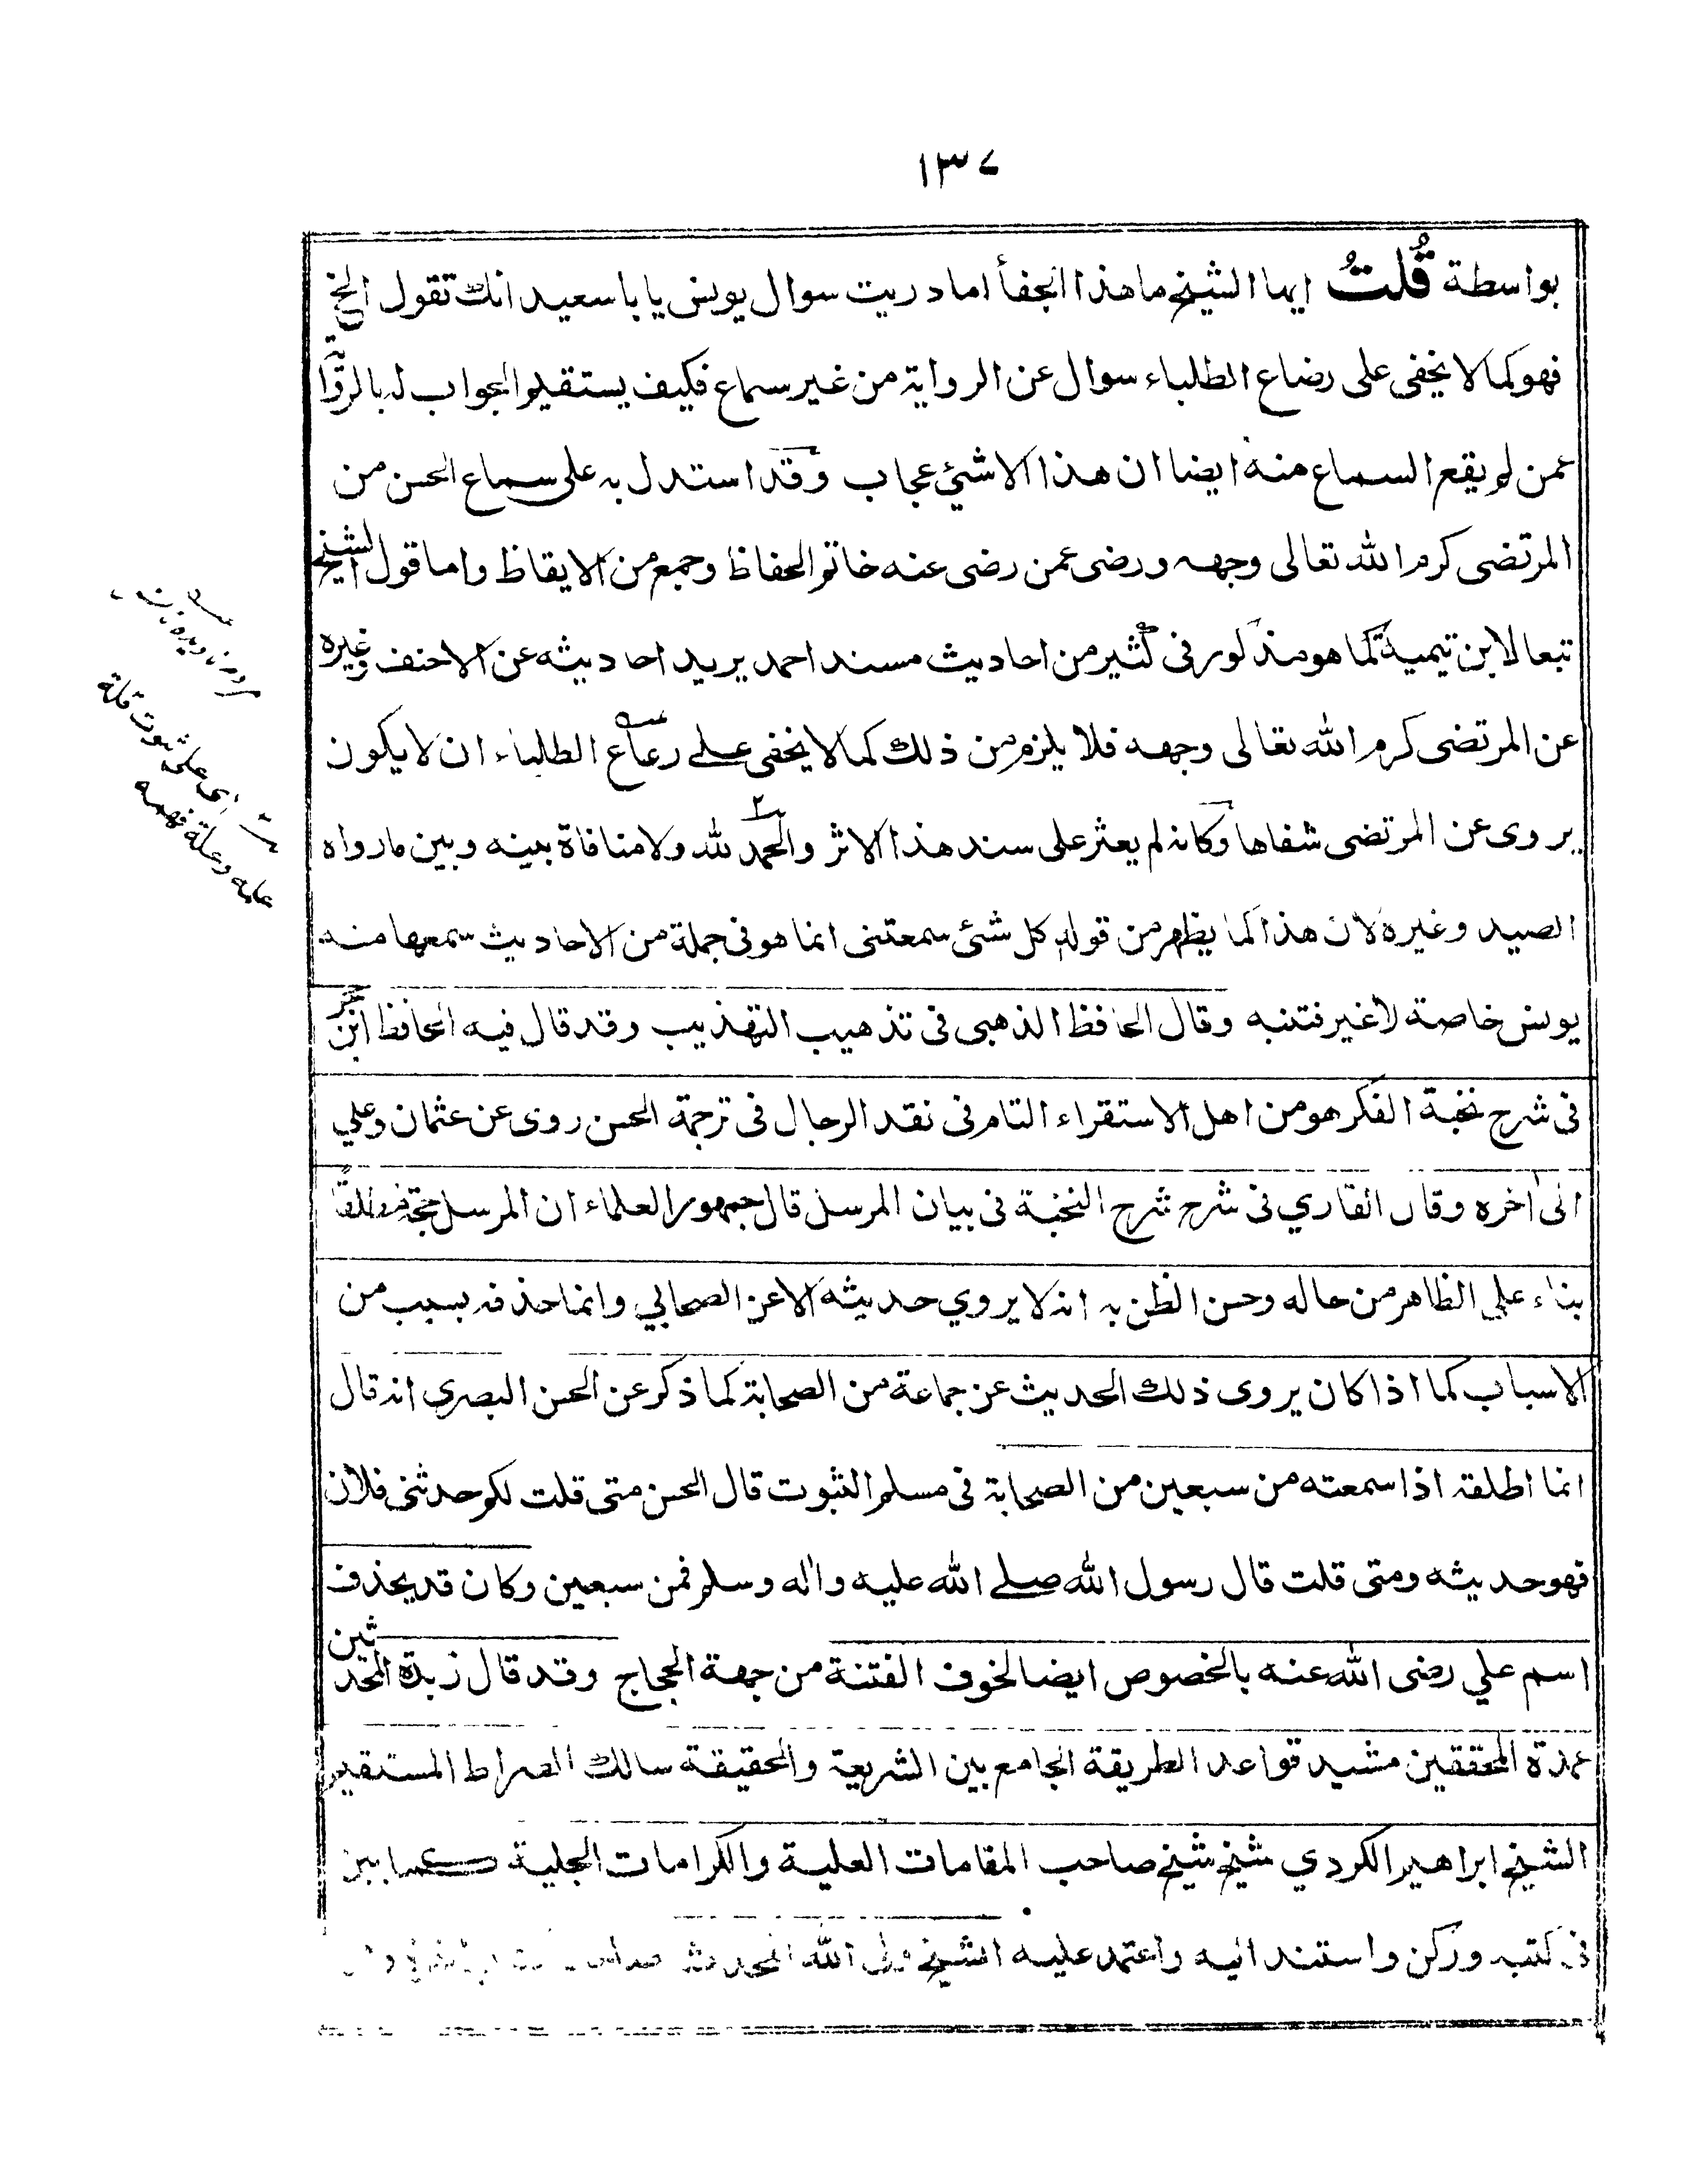 ١٣٧
بواسطة قُلتُ ايها الشيخ ما هذا الجفأ اما دريت سوال يونس يا با سعيد انك تقول الخ
فهو كما لا يخفى على رضاع الطلباء سوال عن الرواية من غير سماع فكيف يستقيم الجواب له بالرواية
عمن لم يقع السماع منه ايضا ان هذا الا شئ عجاب وقد استدل به على سماع الحسن من
المرتضى كرم الله تعالى وجهه ورضى عمن رضى عنه خاتم الحفاظ وجمع من الايقاظ واما قول الشيخ
تبعا لابن تيمية كما هو مذكور فى كثير من احاديث مسند احمد يريد احاديثه عن الاحنف وغيره
عن المرتضى كرم الله تعالى وجهه فلا يلزم من ذلك كما لا يخفى على رعاع الطلباء ان لا يكون
يروى عن المرتضى شفاها وكانه لم يعثر على سند هذا الاثر والحمد لله ولا منافاة بينه وبين ما رواه
الصيد وغيره لان هذا كما يظهر من قوله كل شئ سمعتنى انما هو فى جملة من الاحاديث سمعها منه
يونس خاصة لا غير فتنبه وقال الحافظ الذهبى فى تذهيب التهذيب وقد قال فيه الحافظ ابن حجر
فى شرح نخبة الفكر هو من اهل الاستقراء التام فى نقد الرجال فى ترجمة الحسن روى عن عثمان وعلي
الىٰ اخره وقال القاري فى شرح شرح النخبة فى بيان المرسل قال جمهور العلماء ان المرسل حجة مطلقًا
بناء علي الظاهر من حاله وحسن الظن به انه لا يروي حديثه الا عن الصحابي وانما حذفه بسبب من
الاسباب كما اذا كان يروى ذلك الحديث عن جماعة من الصحابة كما ذكر عن الحسن البصرى انه قال
انما اطلقه اذا سمعته من سبعين من الصحابة فى مسلم الثبوت قال الحسن متى قلت لكم حدثنى فلان
فهو حديثه ومتى قلت قال رسول الله صلے الله عليه واٰله وسلم فمن سبعين وكان قد يحذف
اسم علي رضى الله عنه بالخصوص ايضا لخوف الفتنة من جهة الحجاج وقد قال زبدة المحدثين
عمدة المحققين مشيد قواعد الطريقة الجامع بين الشريعة والحقيقة سالك الصراط المستقيم
الشيخ ابراهيم الكردي شيخ شيخ صاحب المقامات العلية والكرامات الجلية كما بين
فى كتبه وركن واستند اليه واعتمد عليه الشيخ ولى الله المحدث
اى على ثبوت قلة
علمه وعلة فهمه